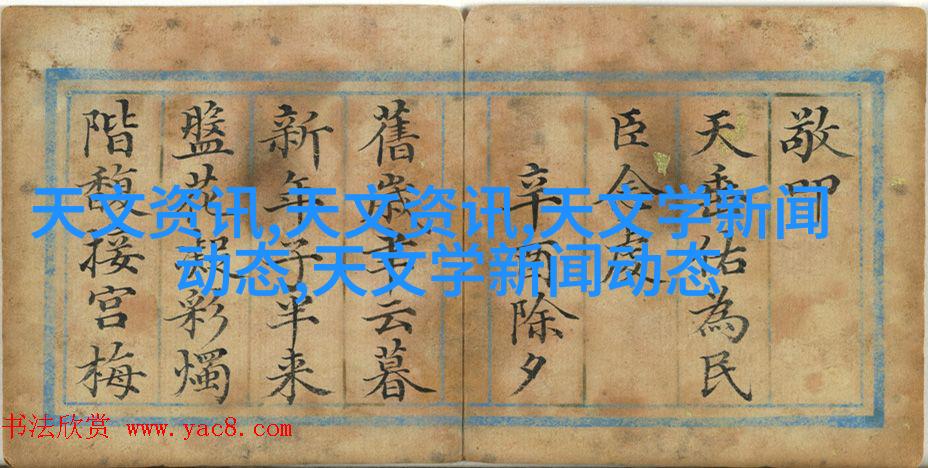 敬叩
天垂佑為民
臣處
辛酉除夕
舊歲云暮
新年子半来
盤花彩燭
階馥接宮梅
天文资讯,天文资讯,天文学新闻
动态,天文学新闻动态
书法欣赏 www.yac8.com